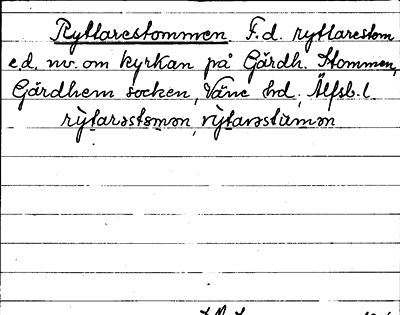 Ryttarestommen F.d. ryttarestom
e.d. nv. om kyrkan på Gärdh. Stommen,
Gärdhem socken, Väne hd, Älfsb. l
rỳtarəstəmən, rỳtarəstumən